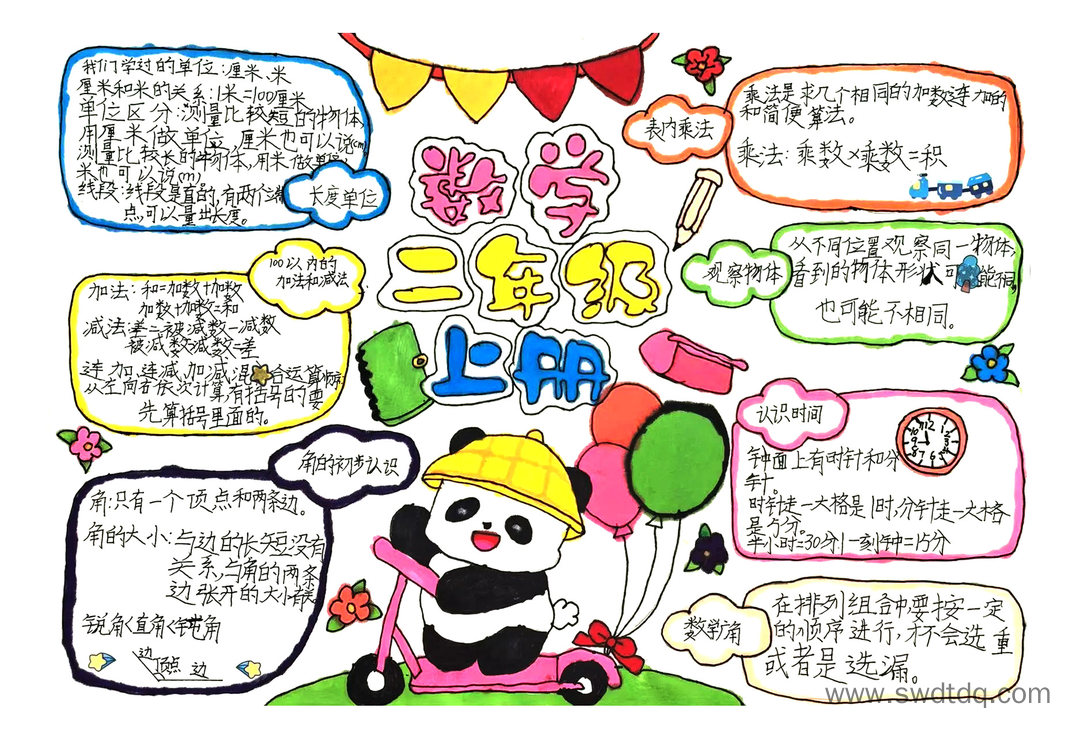 我们学过的单位:厘米、米
厘米和米的关系:1米=100厘米
单位区分:测量比较短的物体
用厘米做单位,厘米也可以说(cm)
测量比较长的物体,用米做单位,
米也可以说(m)
线段:线段是直的,有两个端
点,可以量出长度。
长度单位
数学
二年级
上册
表内乘法
乘法是求几个相同的加数连加的
和简便算法。
乘法:乘数×乘数=积
100以内的
加法和减法
加法:和=加数+加数
加数+加数=和
减法:差=被减数-减数
被减数-减数=差
连加、连减、加减混合运算
从左向右依次计算有括号的要
先算括号里面的。
观察物体
从不同位置观察同一物体,
看到的物体形状可能不同,
也可能不相同。
认识时间
12
1
2
3
4
5
6
7
8
9
10
11
钟面上有时针和分
针。
时针走一大格是1时,分针走一大格
是5分。
半小时=30分 一刻钟=15分
角的初步认识
角:只有一个顶点和两条边。
角的大小:与边的长短没有
关系,与角的两条
边张开的大小有关
锐角<直角<钝角
边
顶点 边
数学广角
在排列组合中要按一定
的顺序进行,才不会选重
或者是选漏。
www.swdtdq.com